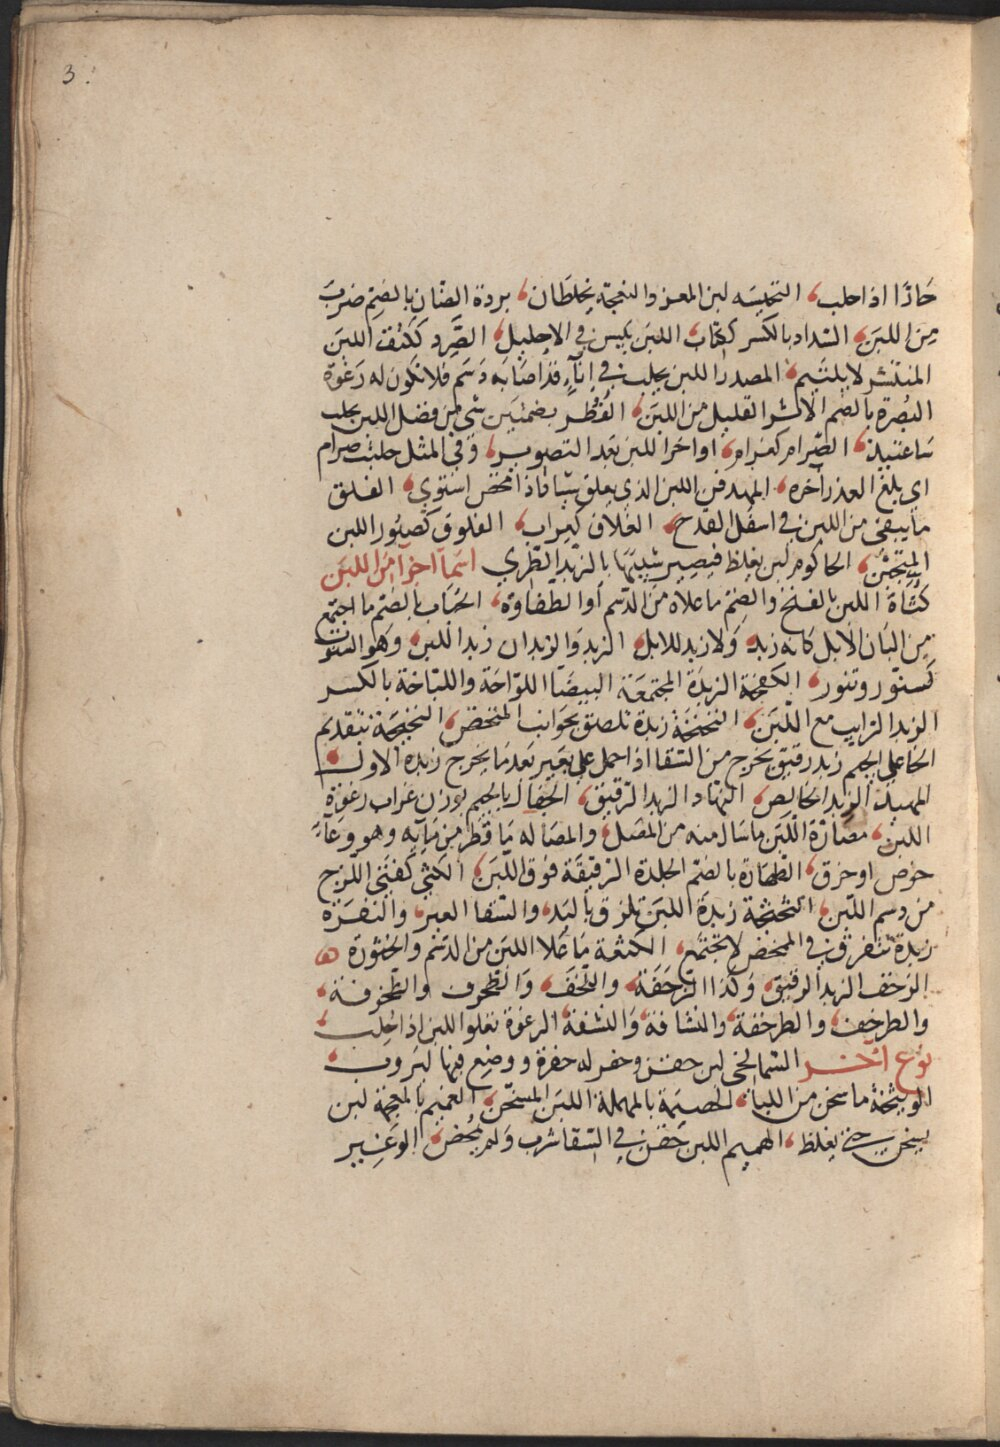 3.
حَارًّا اذا حلب، النخيسه لبن المعز والنعجة يخلطان، بردة الضان بالضم ضرب
من اللبن، السداد بالكسر ككتاب اللبن يلبس في الاحليل، الصَّرِد ككتف اللبن
المنتشر لا يلتئم، المصدر اللبن يحلب في إناءٍ قد اصابه دَسَم فلا تكون له رَغوة
البُصرة بالضم الاثر القليل من اللبن، الفُطُر بضمتين شي من فضل اللبن يحلب
ساعتئيذ، الصِّرام كغرام، اواخر اللبن بعد التصوير، وفي المثل حلبت صرام
اي بلغ العذر آخره، الممذقر اللبن الذي يعلق شيا فاذا مخض استوي، الفلق
ما يبقى من اللبن في اسفل القدح، الغلاق كغراب، الفلوق كصبور اللبن
المتجبن، الحاكوم لبن يغلظ فيصير شبيها بالزبد الطري اسماً اخراً من اللبن
كثأة اللبن بالفتح والضم ما علاه من الدسم أو الطفاوة، الحُبَاب بالضم ما اجتمع
من البان الابل كانه زبد ولا زبد للابل، الزبد والزبدان زبد اللبن، وهو السنوت
كسنّور وتنور، الكفخة الزبدة المجتمعة البيضا اللوّاخة واللباخة بالكسر
الزبد الذايب مع اللبن، النخنخة زبدة تلصق بجوانب الممخض، النخيجة بتقديم
الخا على الجيم زبد رقيق يخرج من السقا اذا حمل على بعير بعد ما يخرج زبده الاول
المهيد الزبد الخالص، النهاد الزبد الرقيق، الجفال بالجيم بوزن غراب رغوة
اللبن، مصارة اللبن ما سال منه من المصل، والمصاله ما قطر من مآيه وهو وعاء
خوص او خزق، الطهارة بالضم الجلدة الرقيقة فوق اللبن، الكثي كفتى اللزج
من وسم اللبن، النخنخة زبدة اللبن تلزق باليد، والسقا العبر، والنفزة
زبدة تتفرق في الممخض لا تجتمع، الكثعة ما علا اللبن من الدسم والخثورة ه
الزخف الزبد الرقيق، وكذا الزحفة، واللخف، والطخرف والطخرفة،
والطرخف، والطرخفة، والنشافة، والنشفة، الرغوة تعلو اللبن اذا حلب،
نوع آخر الشمالخي لبن حقن وحفر له حفرة ووضع فيها ليروب،
الوثيخة ما سخن من اللبا، الحصيمة بالمهملة اللبن المسخن، الغميم بالمعجمة لبن
يسخن حتي يغلظ، الهميم اللبن حقن في السقا شرب ولم يمخض، الوغير